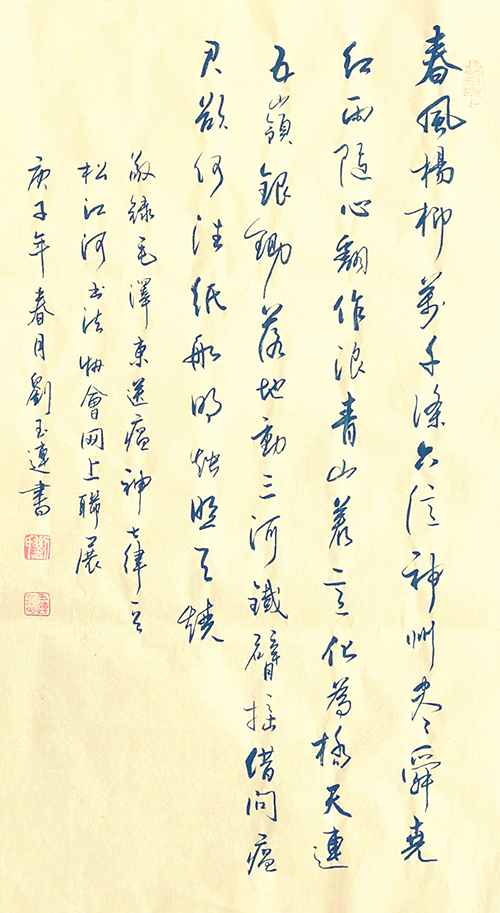 春風楊柳萬千條六億神州尽舜堯
红雨随心翻作浪青山著意化為橋天連
五嶺銀鋤落地動三河鐵臂摇借问瘟
君欲何往纸船明燭照天燒
敬録毛澤東送瘟神七律
松江河书法协會网上聯展
庚子年春月劉玉連書